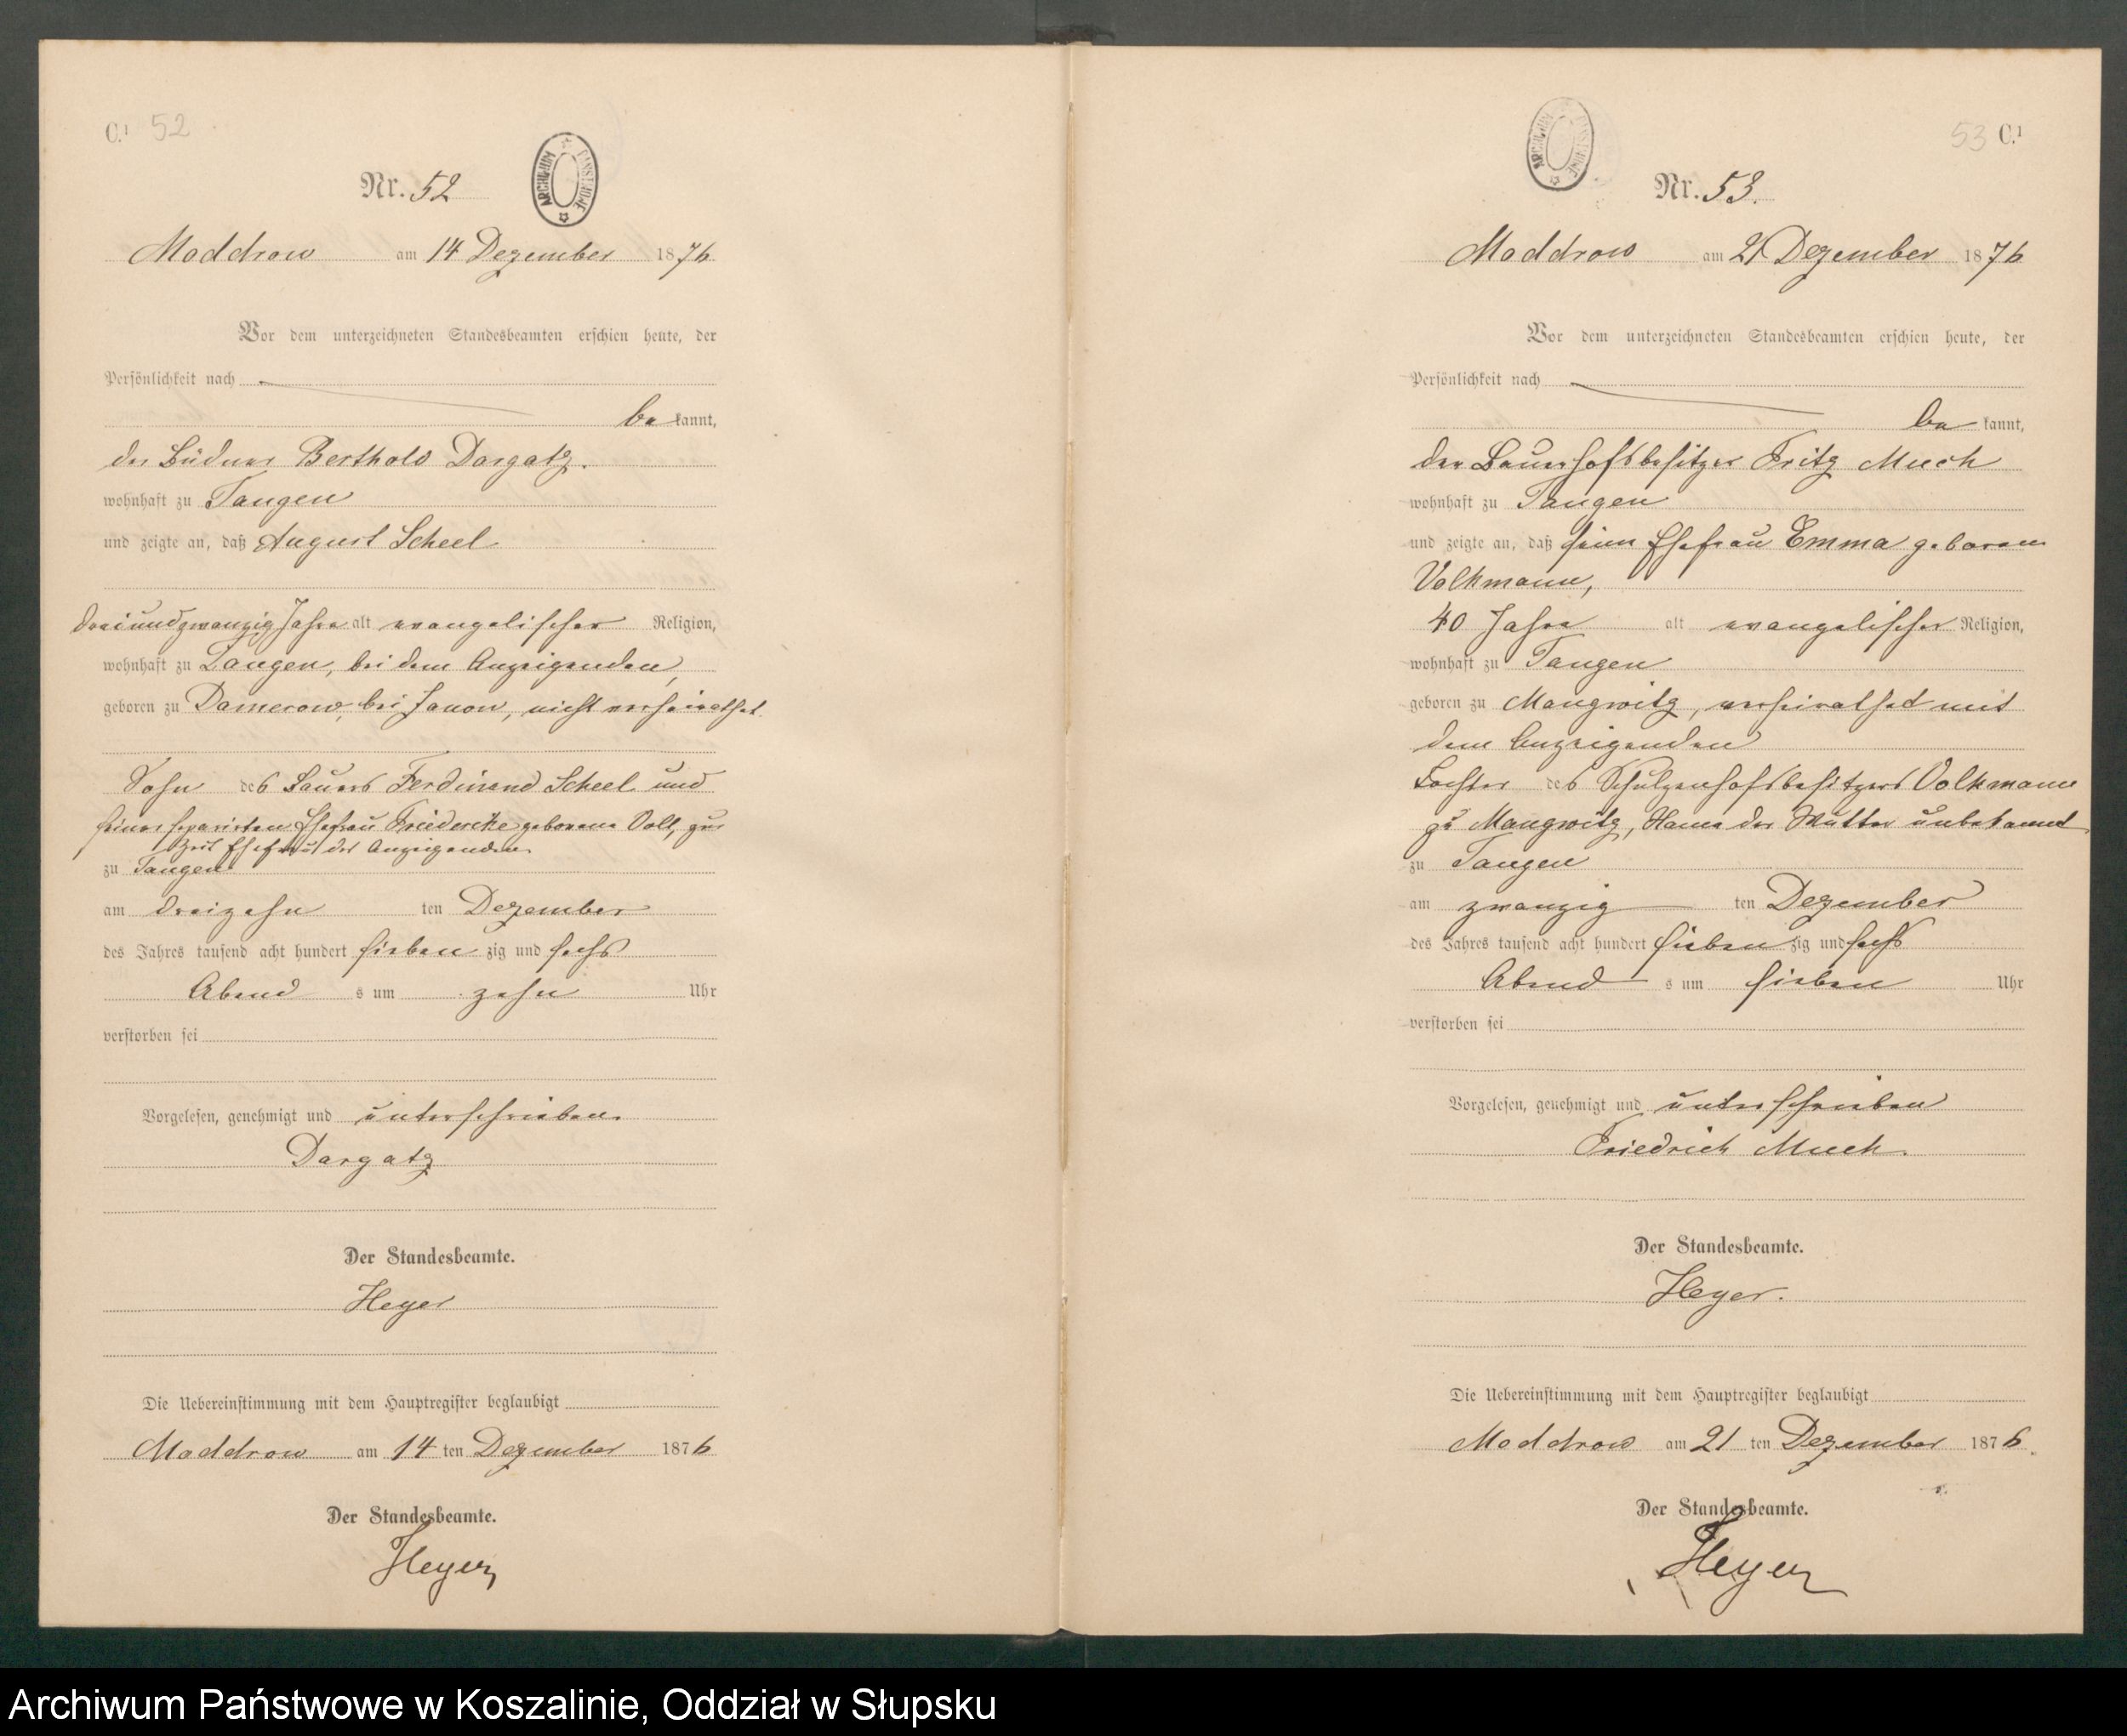 C.1 52
ARCHIWUM PAŃSTWOWE
Nr. 52
Moddrow am 14 Dezember 1876
Vor dem unterzeichneten Standesbeamten erschien heute, der
Persönlichkeit nach
be kannt,
der Büdner Berthold Dargatz.
wohnhaft zu Tangen
und zeigte an, daß August Scheel
dreiundzwanzig Jahre alt evangelischer Religion,
wohnhaft zu Tangen, bei dem Anzeigenden,
geboren zu Damerow, bei Zanow, nicht verheirathet
Sohn des Bauers Ferdinand Scheel und
seiner separirten Ehefrau Friedericke geborene Volt, zur
Zeit Ehefrau des Anzeigenden
zu Tangen
am dreizehn ten Dezember
des Jahres tausend acht hundert sieben zig und sechs
Abend s um zehn Uhr
verstorben sei
Vorgelesen, genehmigt und unterschrieben.
Dargatz
Der Standesbeamte.
Heyer
Die Uebereinstimmung mit dem Hauptregister beglaubigt
Moddrow am 14 ten Dezember 1876
Der Standesbeamte.
Heyer
53 C.1
ARCHIWUM PAŃSTWOWE
Nr. 53.
Moddrow am 21 Dezember 1876
Vor dem unterzeichneten Standesbeamten erschien heute, der
Persönlichkeit nach
be kannt,
der Bauerhofsbesitzer Fritz Much
wohnhaft zu Tangen
und zeigte an, daß seine Ehefrau Emma geborene
Volkmann,
40 Jahre alt evangelischer Religion,
wohnhaft zu Tangen
geboren zu Mangwitz, verheirathet mit
dem Anzeigenden
Tochter des Schulzenhofsbesitzers Volkmann
zu Mangwitz, Name der Mutter unbekannt
zu Tangen
am zwanzig ten Dezember
des Jahres tausend acht hundert sieben zig und sechs
Abend s um sieben Uhr
verstorben sei
Vorgelesen, genehmigt und unterschrieben
Friedrich Much.
Der Standesbeamte.
Heyer.
Die Uebereinstimmung mit dem Hauptregister beglaubigt
Moddrow am 21 ten Dezember 1876.
Der Standesbeamte.
Heyer
Archiwum Państwowe w Koszalinie, Oddział w Słupsku